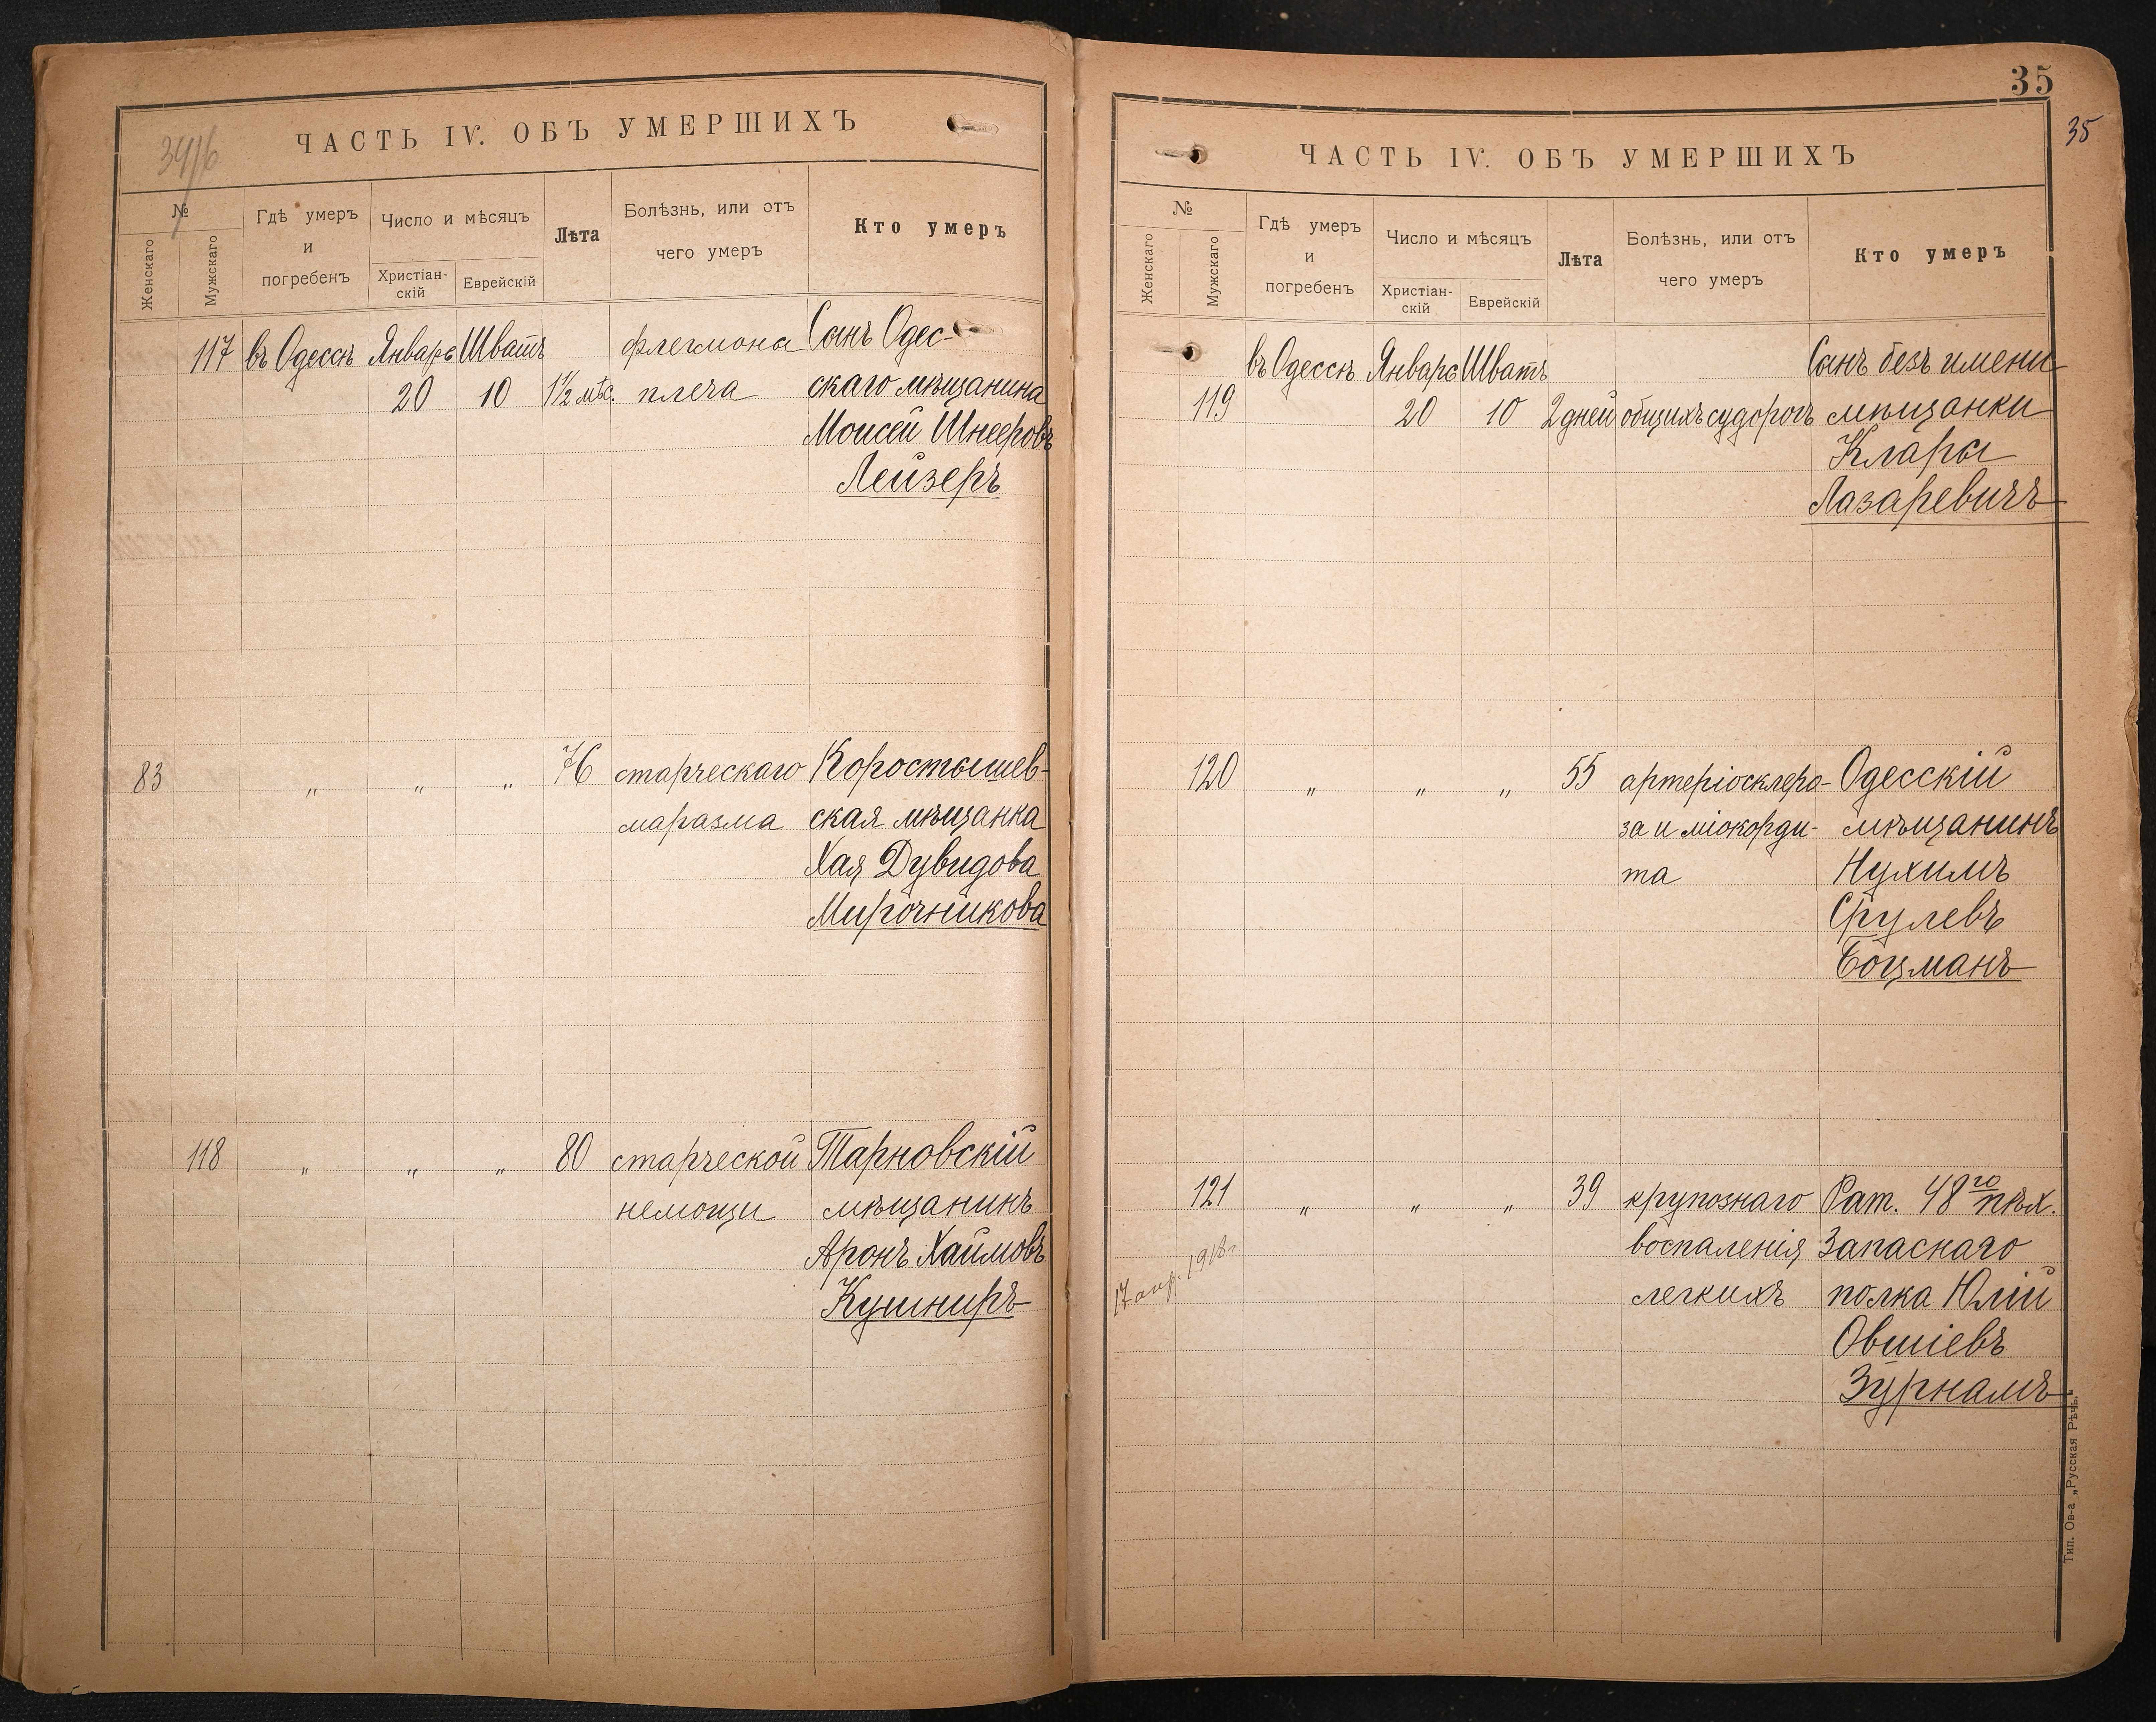 34/6
ЧАСТЬ IV. ОБЪ УМЕРШИХЪ
№
Женскаго
Мужскаго
Гдѣ умеръ
и
погребенъ
Число и мѣсяцъ
Христіан-
скій
Еврейскій
Лѣта
Болѣзнь, или отъ
чего умеръ
Кто умеръ
117 въ Одессѣ Январь Шватъ флегмона Сынъ Одес-
20 10 1½ мѣс. плеча скаго мѣщанина
Моисей Шнееровъ
Лейзеръ
83 „ „ „ 76 старческаго Коростышев-
маразма ская мѣщанка
Хая Дувидова
Мирочникова
118 „ „ „ 80 старческой Тарновскій
немощи мѣщанинъ
Аронъ Хаимовъ
Кушниръ
35
35
ЧАСТЬ IV. ОБЪ УМЕРШИХЪ
№
Женскаго
Мужскаго
Гдѣ умеръ
и
погребенъ
Число и мѣсяцъ
Христіан-
скій
Еврейскій
Лѣта
Болѣзнь, или отъ
чего умеръ
Кто умеръ
въ Одессѣ Январь Шватъ Сынъ безъ имени
119 20 10 2 дней общихъ судорогъ мѣщанки
Клары
Лазаревичъ
120 „ „ „ 55 артеріосклеро- Одесскій
за и міокорди- мѣщанинъ
та Нухимъ
Срулевъ
Боцманъ
121 „ „ „ 39 крупознаго Рат. 48го пѣх.
воспаленія Запаснаго
легкихъ полка Юлій
Овшіевъ
Зурнамъ
17 апр. 1918 г.
Тип. Ов-а „Русская Рѣчь.“